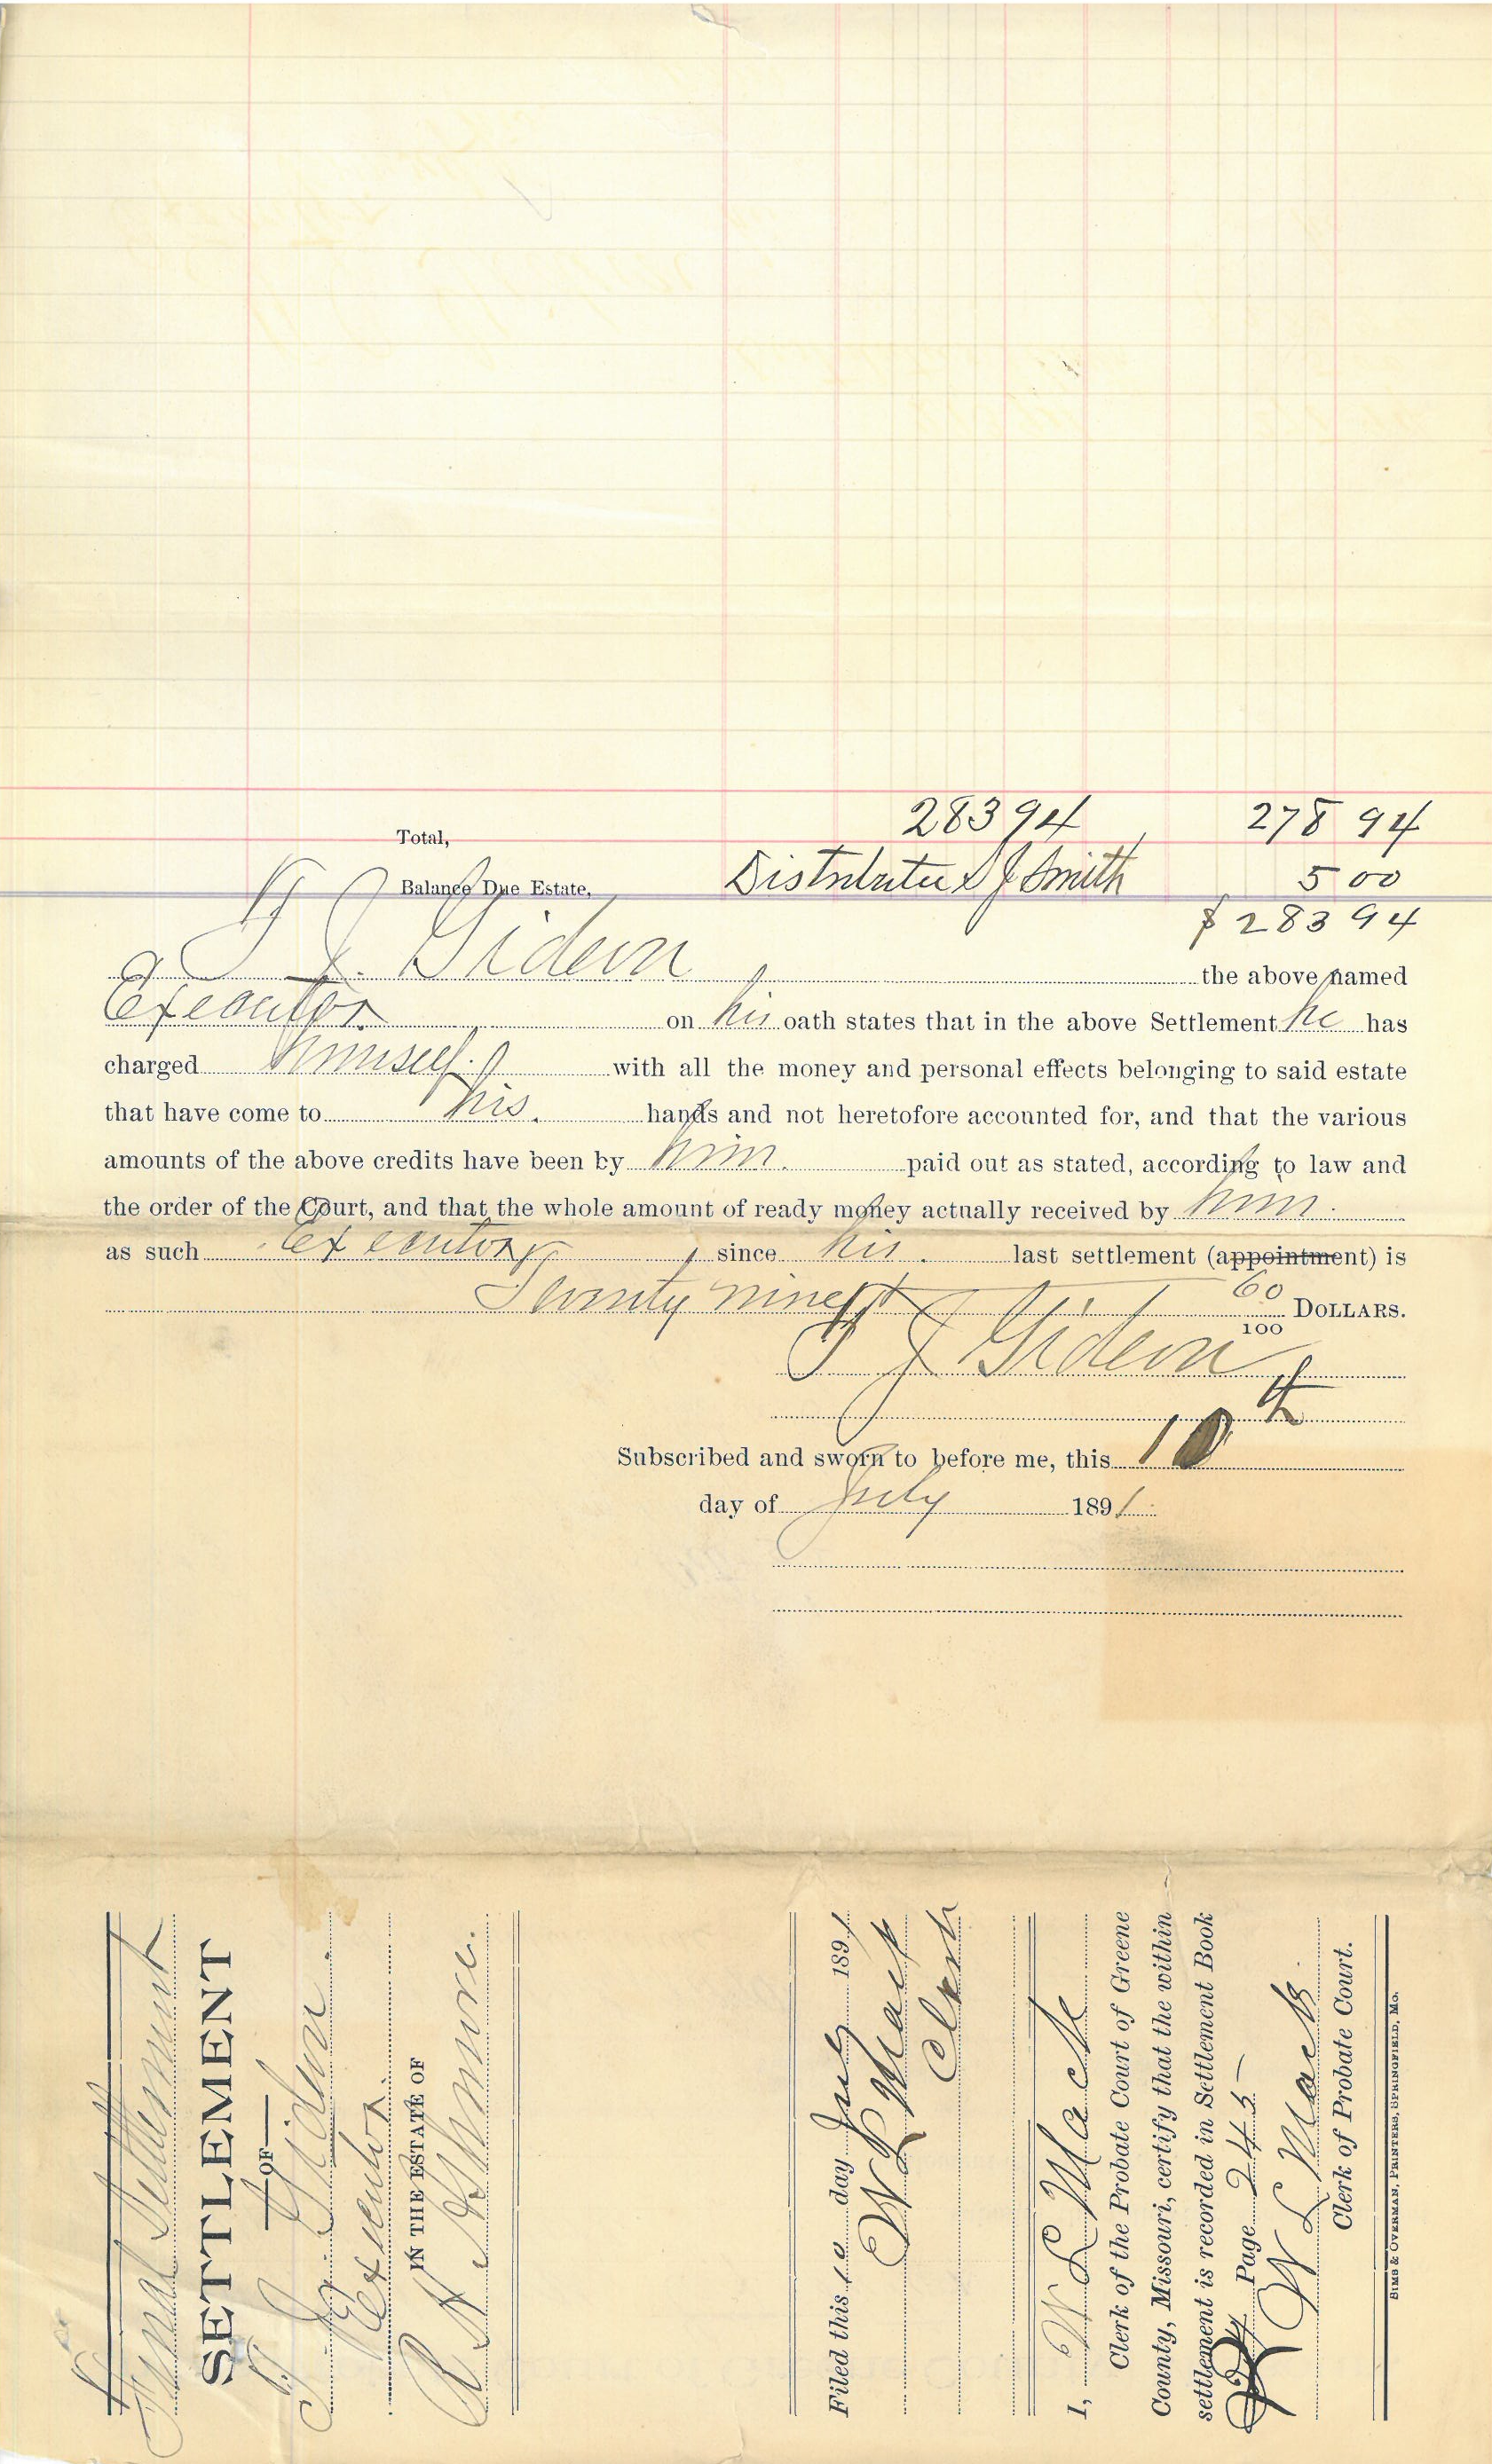 Total, 283 94 278 94
Balance Due Estate, Distributee S J Smith 5 00
$ 283 94
T J Gideon the above named
Executor on his oath states that in the above Settlement he has
charged himself with all the money and personal effects belonging to said estate
that have come to his hands and not heretofore accounted for, and that the various
amounts of the above credits have been by him paid out as stated, according to law and
the order of the Court, and that the whole amount of ready money actually received by him
as such executor, since his last settlement (appointment) is
Seventy nine & 60/100 DOLLARS.
T J Gideon
Subscribed and sworn to before me, this 10th
day of July 1891
Final Settlement
SETTLEMENT
OF
T. J. Gideon
Executor
IN THE ESTATE OF
Filed this 10 day July 1891
W L Mack
Clerk
I, W L Mack
Clerk of the Probate Court of Greene
County, Missouri, certify that the within
settlement is recorded in Settlement Book
Page 245
W L Mack
Clerk of Probate Court.
SIMS & OVERMAN, PRINTERS, SPRINGFIELD, MO.